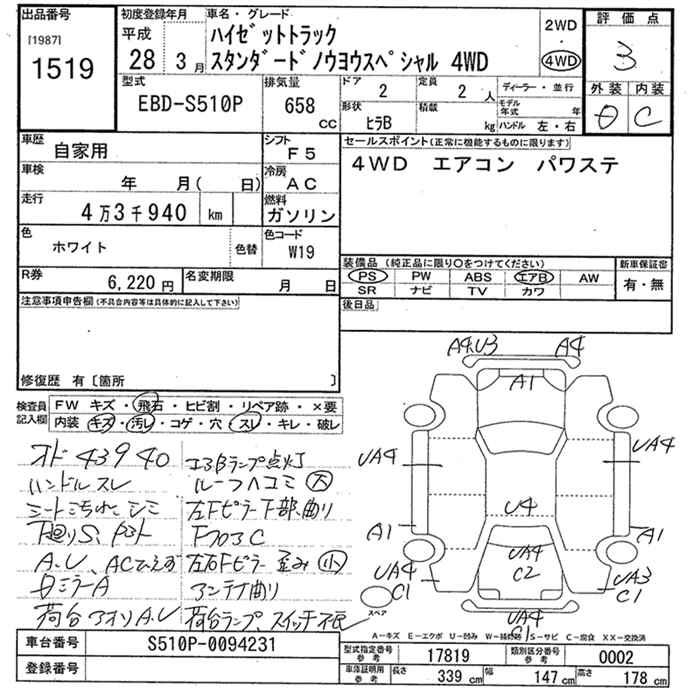 出品番号
[1987]
1519
初度登録年月
平成
28 3 月
車名・グレード
ハイゼットトラック
スタンダードノウヨウスペシャル 4WD
2WD
・
4WD
評価点
3
外装 内装
C
型式
EBD-S510P
排気量
658
CC
ドア
2
定員
2 人
形状
ヒラB
積載
kg
ディーラー・並行
モデル年式 年
ハンドル 左・右
車歴
自家用
シフト
F5
車検
年 月( 日)
冷房
AC
走行
4万3千940 km
燃料
ガソリン
色
ホワイト
色替
色コード
W19
R券
6,220円
名変期限
月 日
セールスポイント(正常に機能するものに限ります)
4WD エアコン パワステ
装備品(純正品に限り○をつけてください)
PS PW ABS エアB AW
SR ナビ TV カワ
新車保証書
有・無
後日品
注意事項申告欄(不具合内容等は具体的に記入して下さい)
修復歴 有〔箇所 〕
検査員記入欄
FW キズ・飛石・ヒビ割・リペア跡・×要
内装・キズ・汚レ・コゲ・穴・スレ・キレ・破レ
オド 43940
エアBランプ点灯
ハンドルスレ
ルーフヘコミ 大
シートこちれ シミ
左Fピラー下部曲り
下廻りS、
FフロアC
A.U、
左右Fピラー歪み 小
ミラーA
アンテナ曲り
荷台アオリA.U
荷台ランプ、スイッチ
A4.U3
A4
A1
UA4
UA4
U4
A1
A1
UA4
C2
UA4
C1
UA3
C1
UA4
C1
スペア
A-キズ E-エクボ U-凹み W-補修跡 S-サビ C-腐食 XX-交換済
車台番号
S510P-0094231
登録番号
型式指定番号
参考
17819
類別区分番号
参考
0002
車体証明用
参考
長さ
339 cm
幅
147 cm
高さ
178 cm